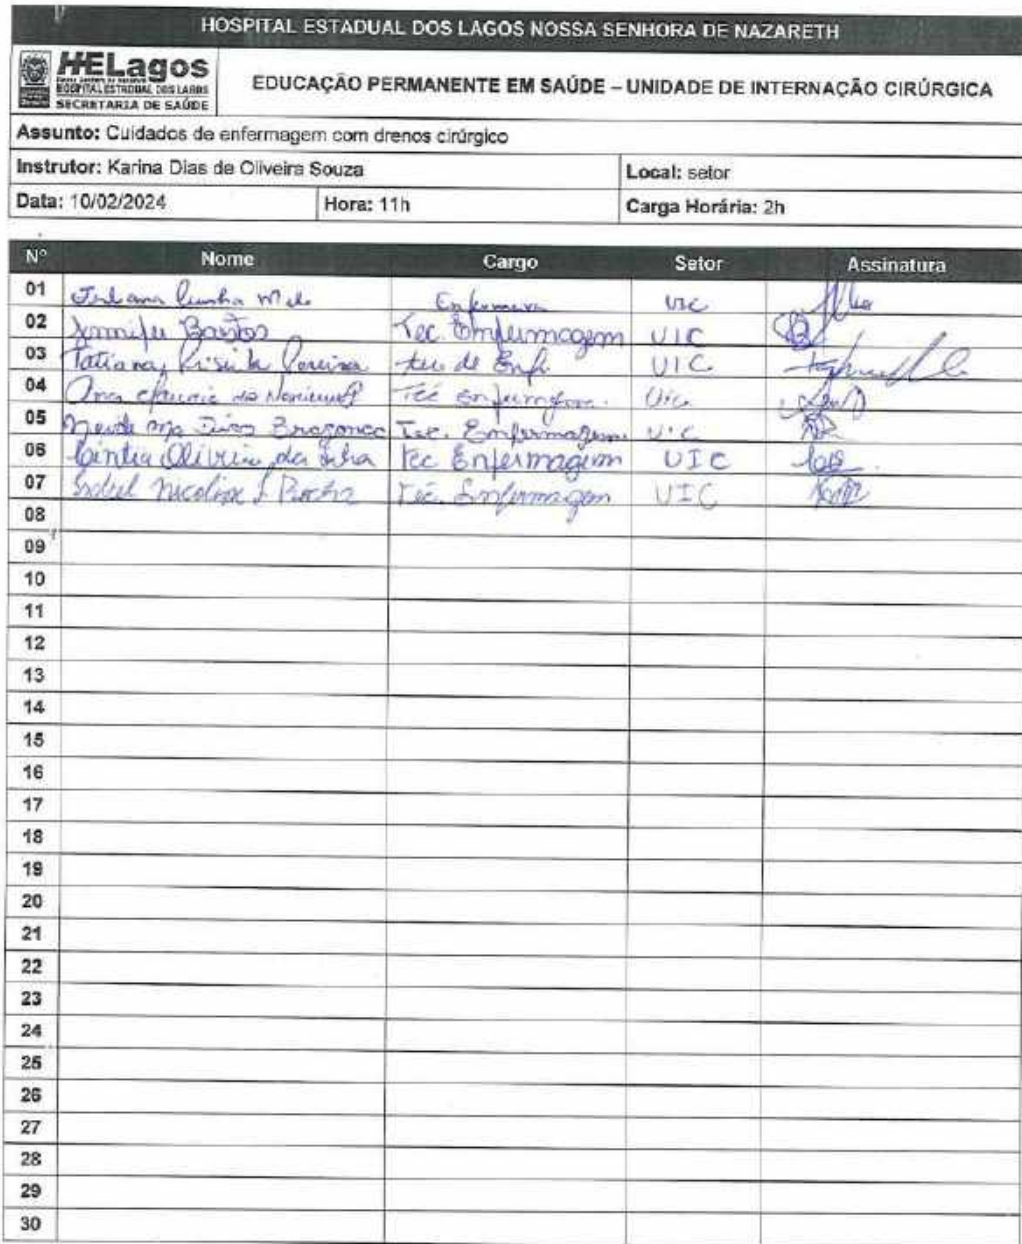 HOSPITAL ESTADUAL DOS LAGOS NOSSA SENHORA DE NAZARETH
HELagos
HOSPITAL ESTADUAL DOS LAGOS
SECRETARIA DE SAÚDE
EDUCAÇÃO PERMANENTE EM SAÚDE – UNIDADE DE INTERNAÇÃO CIRÚRGICA
Assunto: Cuidados de enfermagem com drenos cirúrgico
Instrutor: Karina Dias de Oliveira Souza Local: setor
Data: 10/02/2024 Hora: 11h Carga Horária: 2h
Nº Nome Cargo Setor Assinatura
01 Cunha Enfermeira UIC
02 Jennifer Bastos Tec. Enfermagem UIC
03 Tatiana Pereira tec de Enf. UIC
04 Ana Tec UIC
05 Neide Bragança Tec. Enfermagem UIC
06 Cintia Oliveira da Silva Tec Enfermagem UIC
07 Rocha Téc. Enfermagem UIC
08
09
10
11
12
13
14
15
16
17
18
19
20
21
22
23
24
25
26
27
28
29
30